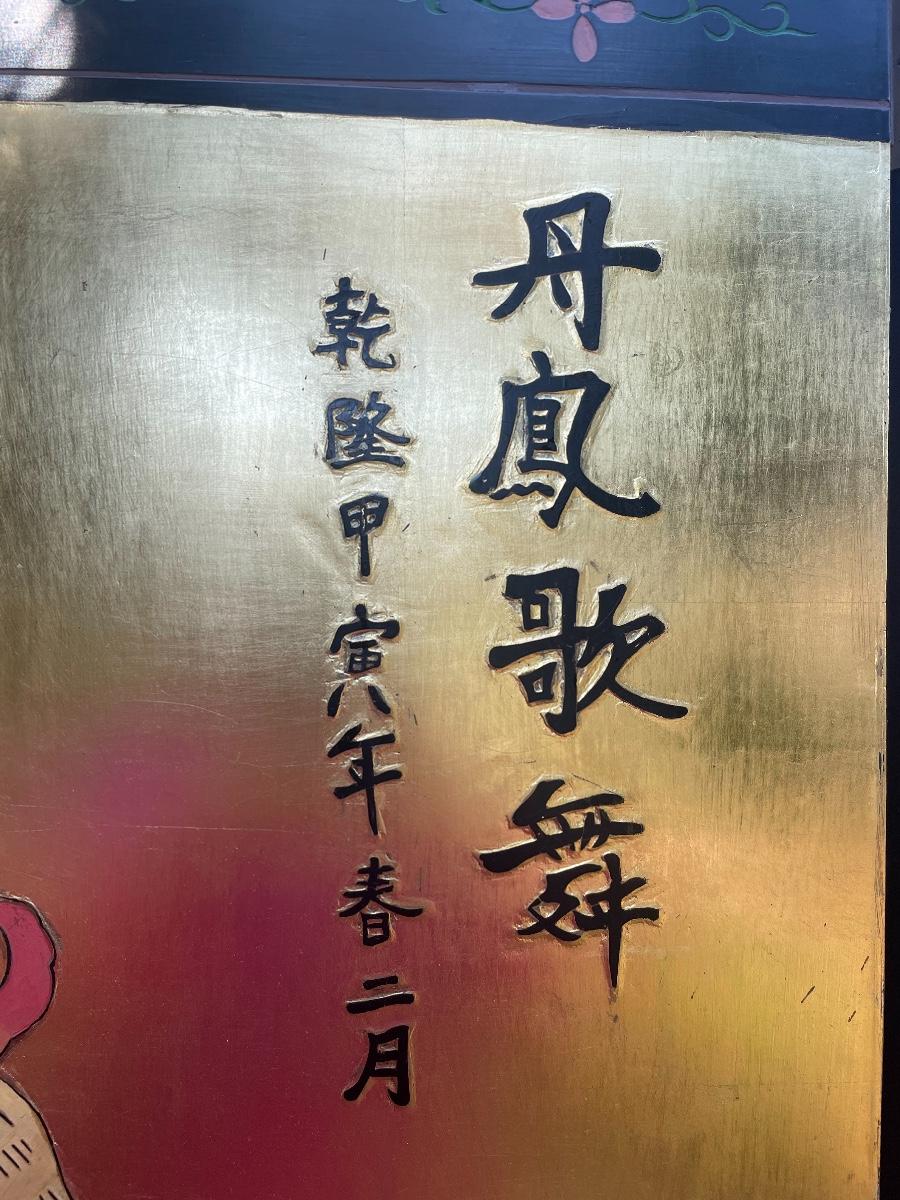 丹鳳歌舞
乾隆甲寅年春二月